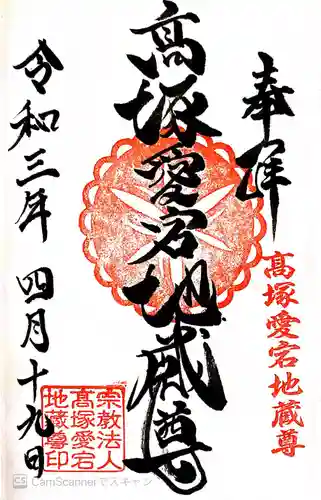 奉拝
高塚愛宕地蔵尊
髙塚愛宕地蔵尊
令和三年 四月十九日
宗教法人
髙塚愛宕
地蔵尊印
CS CamScannerでスキャン